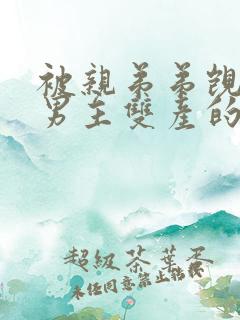 被親弟弟覬
男主雙產的
超級茶葉蛋
未經同意禁止轉載